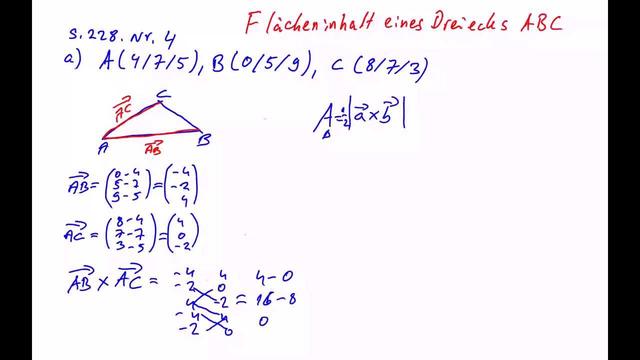 S. 228. Nr. 4
Flächeninhalt eines Dreiecks ABC
a) A(4/7/5), B(0/5/9), C(8/7/3)
C
AC
A AB B
A△ = 1/2 |a⃗ × b⃗|
AB⃗ = (0-4 5-7 9-5) = (-4 -2 4)
AC⃗ = (8-4 7-7 3-5) = (4 0 -2)
AB⃗ × AC⃗ =
-4 4 4-0
-2 0
4 -2 = 16-8
-4 4 0
-2 0